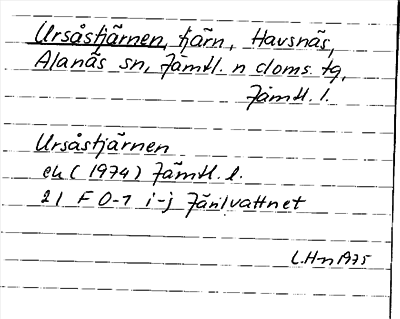 Ursåstjärnen, tjärn, Havsnäs,
Alanäs sn, Jämtl. n doms. tg,
Jämtl. l.
Ursåstjärnen
ek (1974) Jämtl. l.
21 F 0-1 i-j Järilvattnet
L.H-n 1975